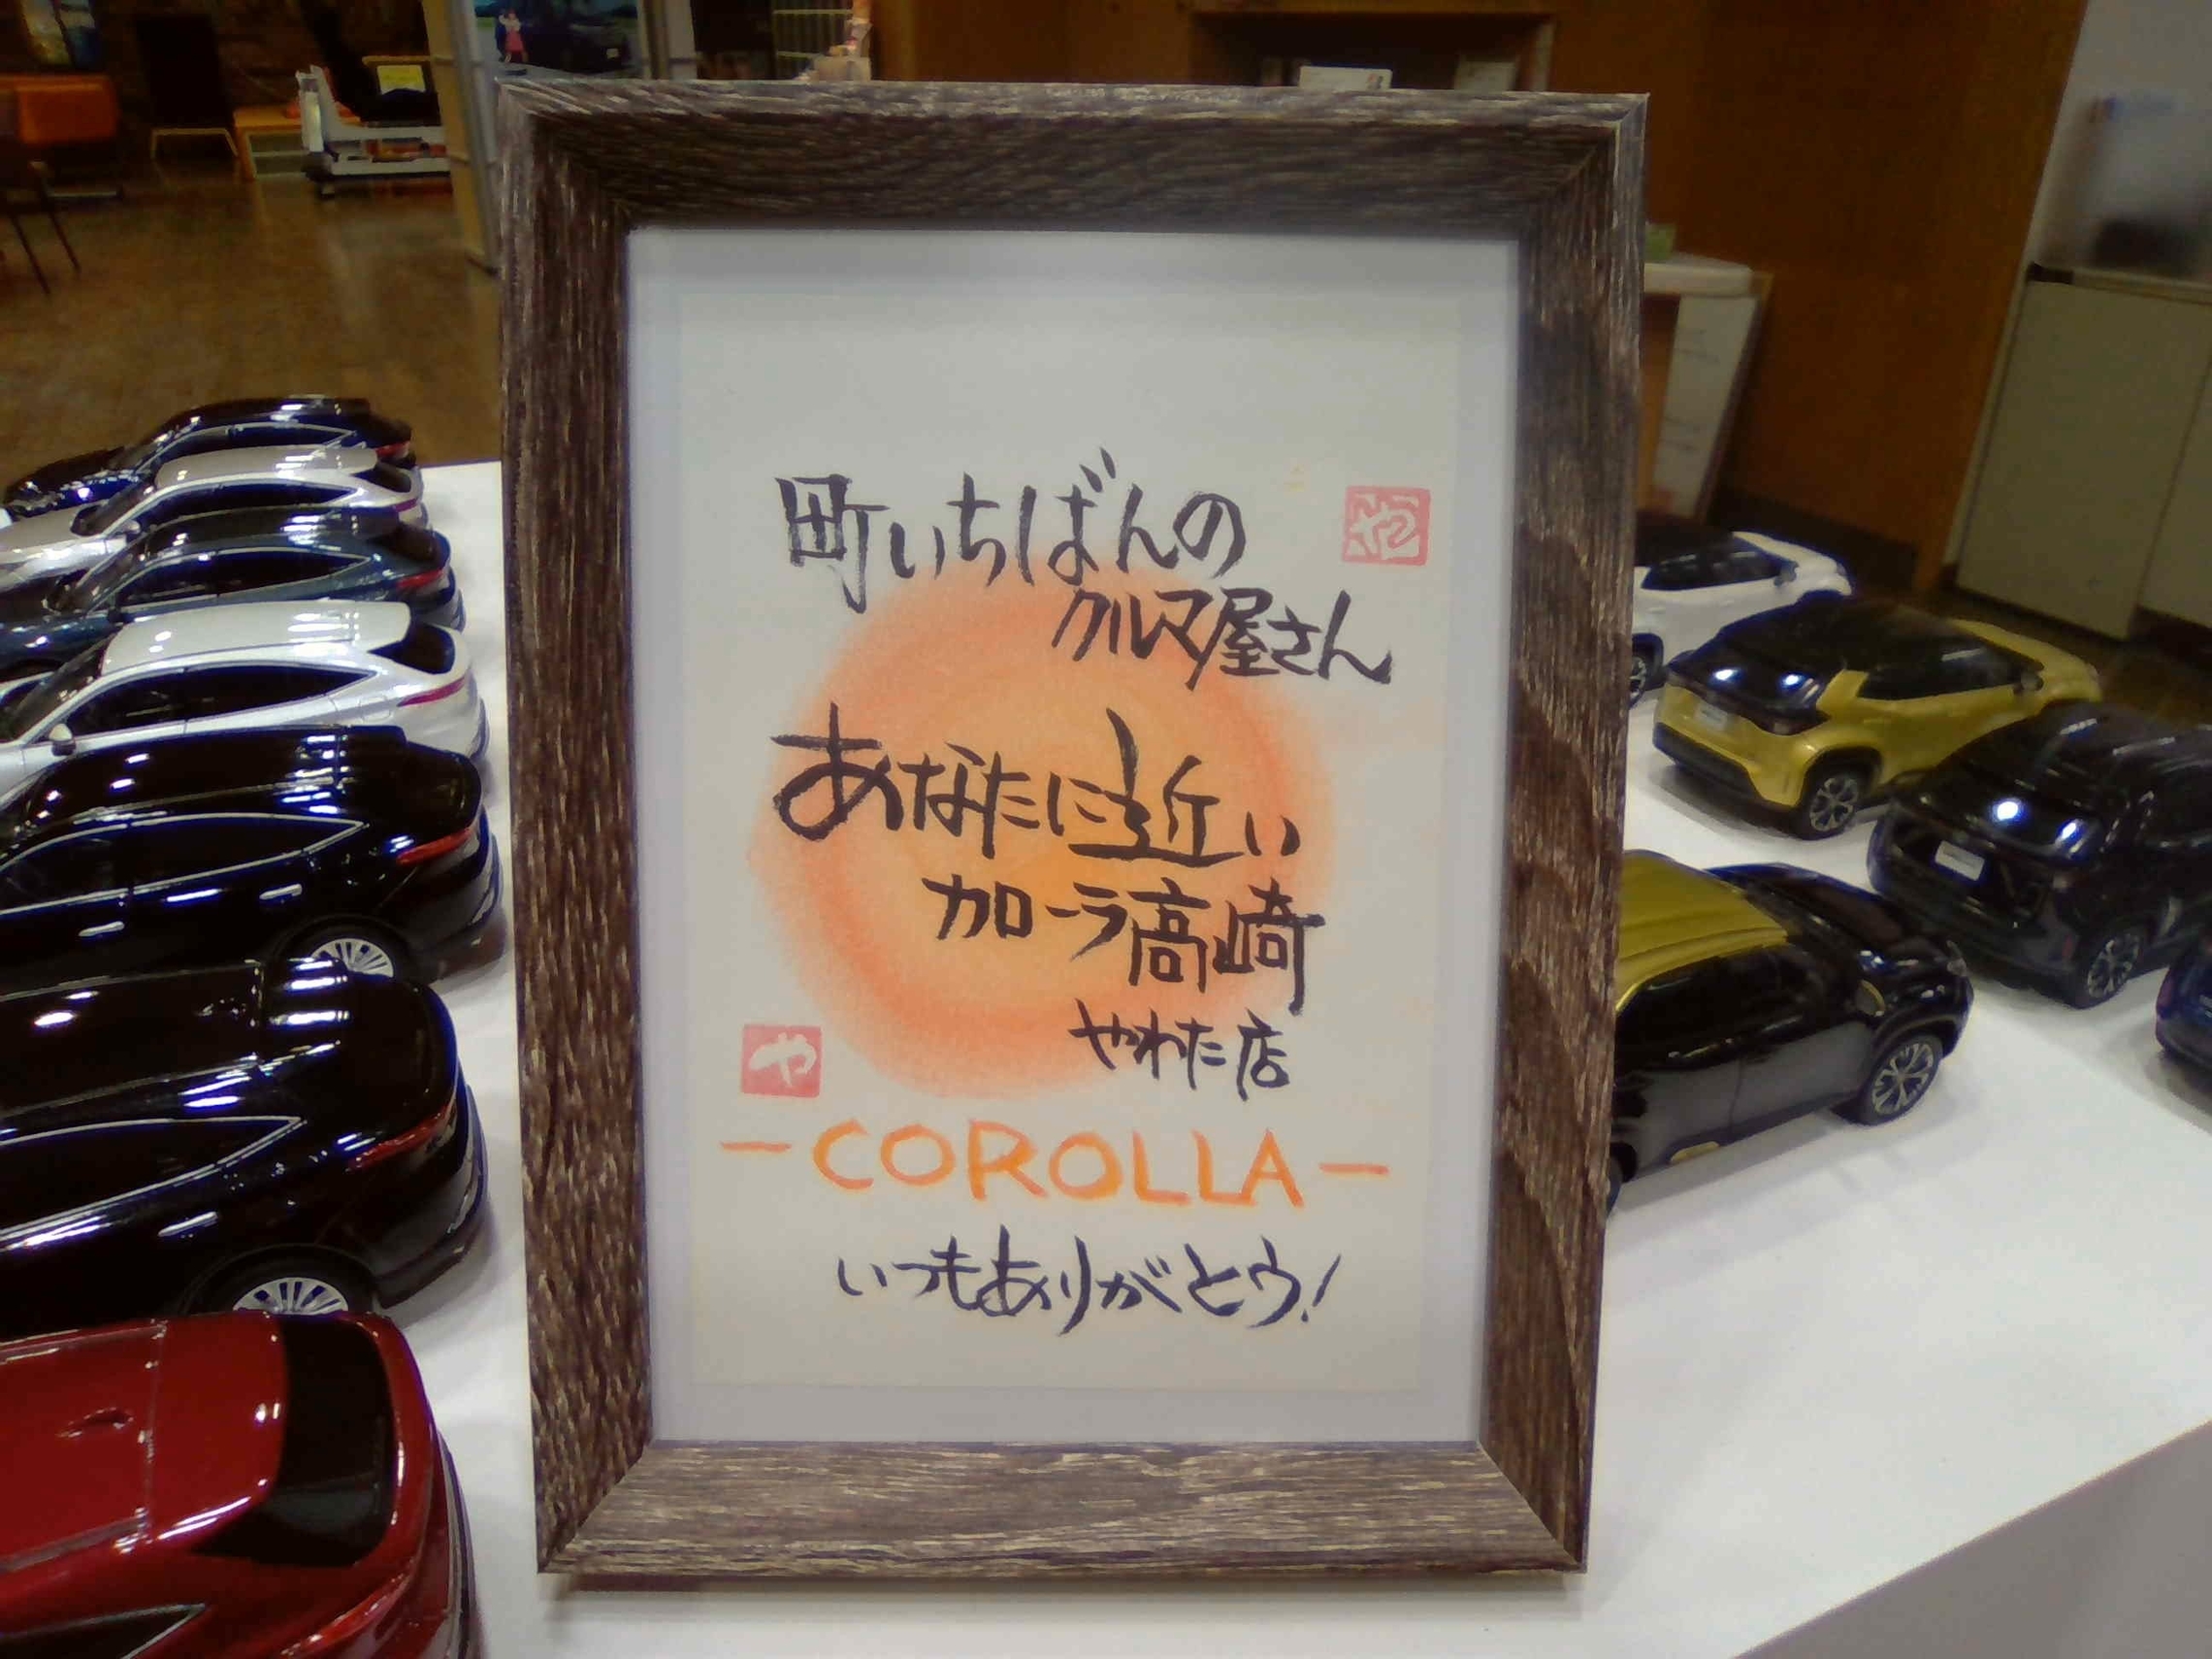 町いちばんの
や
クルマ屋さん
あなたに近い
カローラ高崎
やわた店
や
-COROLLA-
いつもありがとう!